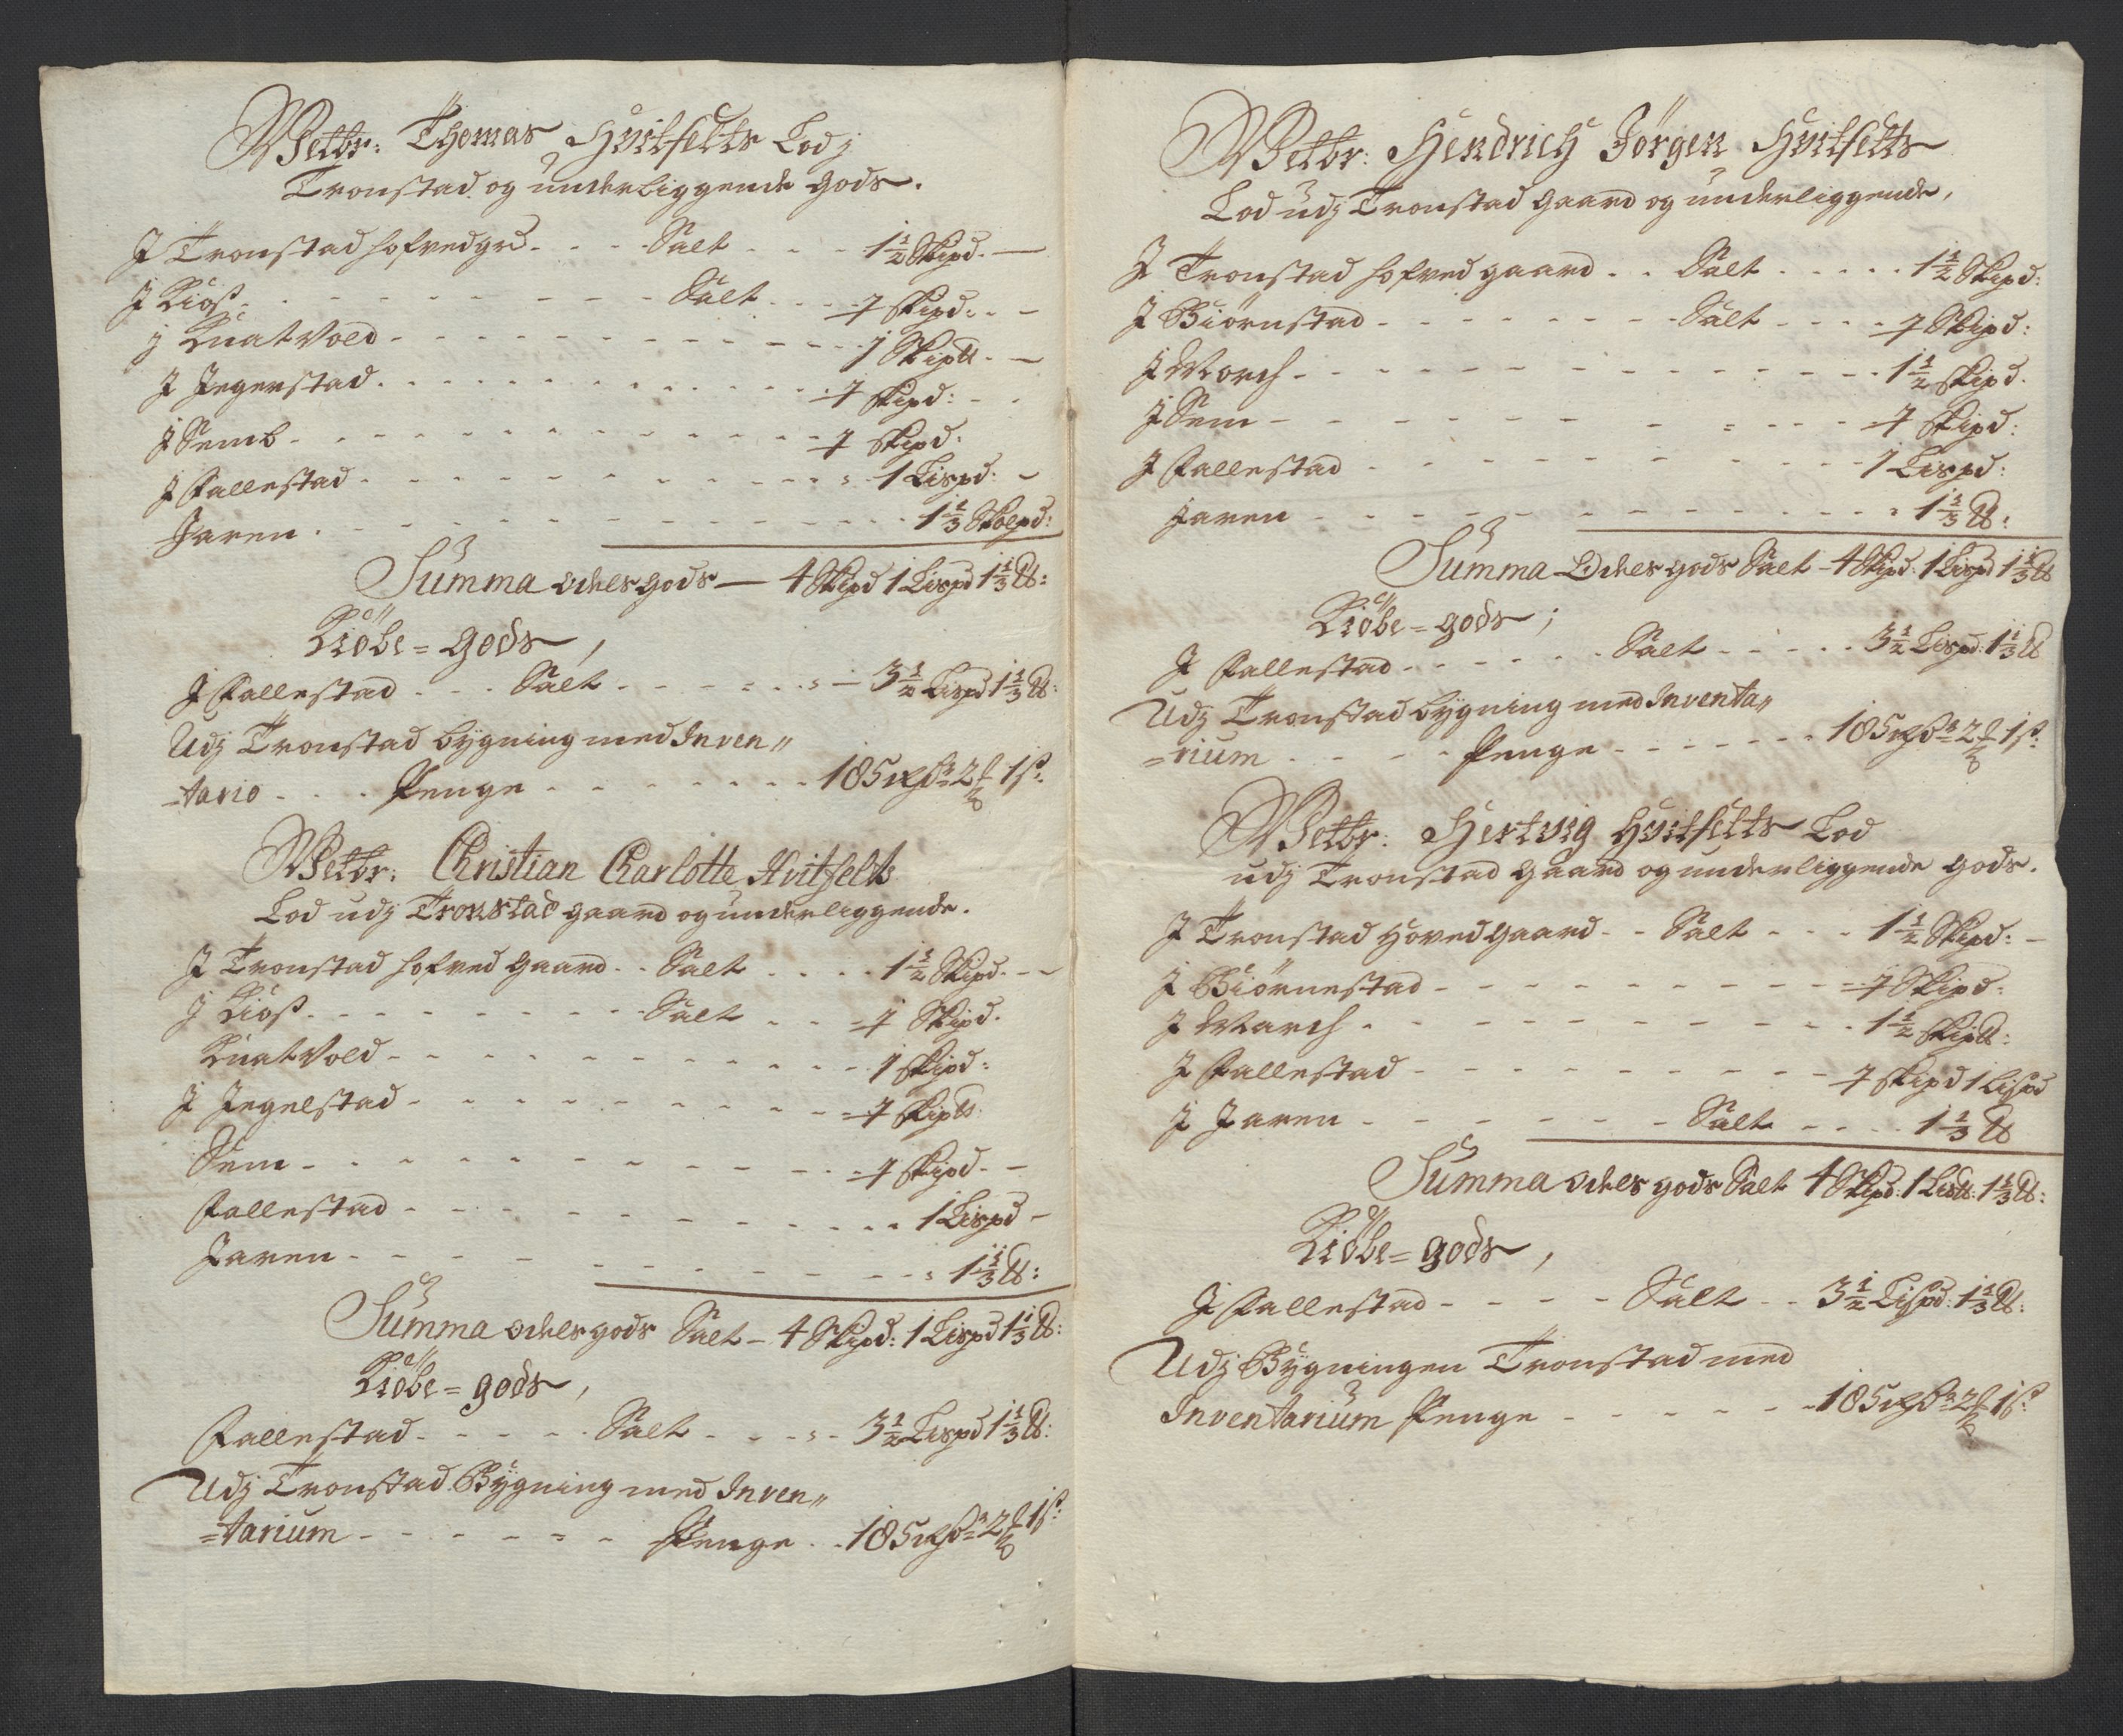 Welbr: Thomas Hvitfeldts Lod j
Tronstad og underliggende Gods.
J Tronstad hofvedgrd. Salt 1½ Skipd.
J Kiøs Salt ½ Skipd:
j KnatVold 1 Skip℔
J Jegerstad ½ Skipd:
J Semb ½ Skipd:
J Fallestad 1 Lispd:
Jaren 1⅓ Skolpd:
Summa Odels gods — 4 Skipd 1 Lispd 1⅓ ℔:
Kiöbe = gods,
J Fallestad Salt 3½ Lispd 1⅓ ℔:
Udj Tronstad bÿgning med Inven„
=tario Penge 185 rd 2 1 s:
Welbr: Christian Charlotte Hvitfelts
Lod udj Tronstad gaard og underliggende.
J Tronstad hofved Gaard Salt 1½ Skipd.
J Kiøs Salt ½ Skipd.
KnatVold 1 Skipd:
J Jegelstad ½ Skip℔
Sem ½ Skipd.
Fallestad 1 Lispd
Jaren 1⅓ ℔:
Summa odels gods Salt 4 Skipd: 1 Lispd 1⅓ ℔:
Kiöbe = gods,
Fallestad Salt 3½ Lispd 1⅓ ℔:
Udj Tronstad Bÿgning med Inven„
=tarium Penge 185 rd 2 1 s:
Welbr: Hendrich Jörgen Hvitfelts
Lod udj Tronstad Gaard og underliggende,
J Tronstad hofved gaard Salt 1½ Skipd:
J Biörnstad Salt ½ Skipd:
J March 1½ Skipd.
J Sem ½ Skipd:
J Fallestad 1 Lispd:
Jaren 1⅓ ℔:
Summa Odels gods Salt 4 Skipd: 1 Lispd 1⅓ ℔
Kiöbe = gods;
J Fallestad Salt 3½ Lispd: 1⅓ ℔
Udj Tronstad bÿgning med Inventa„
=rium Penge 185 rd 2 1 s:
Welbr: Hertvig Hvitfelts Lod
udj Tronstad Gaard og underliggende Gods.
J Tronstad Hoved Gaard Salt 1½ Skipd:
J Biörnestad ½ Skipd:
J March 1½ Skip℔:
J Fallestad ½ Skipd 1 Lispd
J Jaren Salt 1⅓ ℔
Summa odels gods Salt 4 Skipd: 1 Lis℔: 1⅓ ℔:
Kiöbe = gods,
J Fallestad Salt 3½ Lispd: 1⅓ ℔:
Udj Bÿgningen Tronstad med
Inventarium Penge 185 rd 2 1 s: